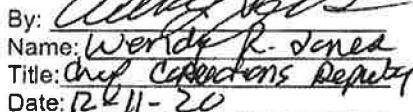 By:
Name: Wendy R. Jones
Title: Chief Corrections Deputy
Date: 12-11-20